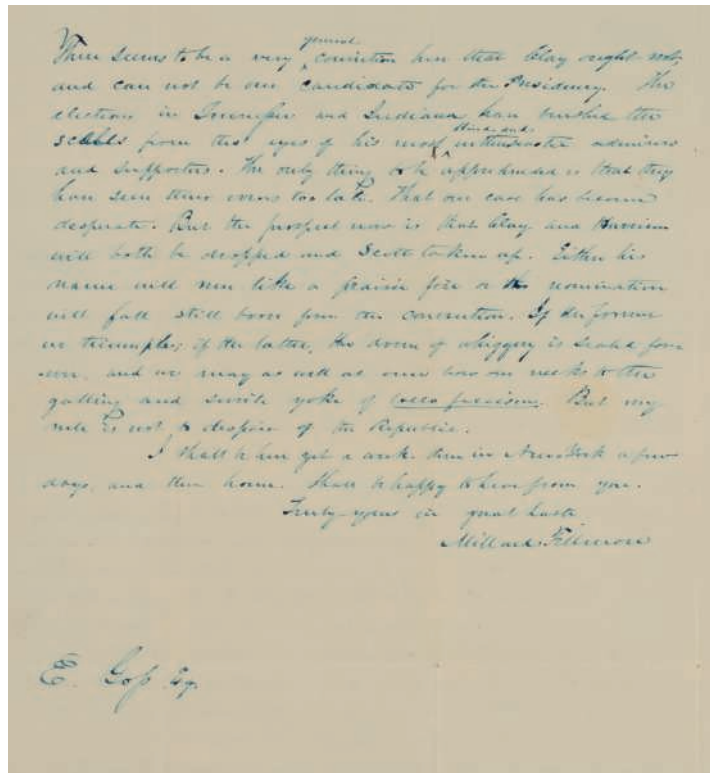 There seems to be a very general conviction here that Clay ought not,
and can not be our candidate for the Presidency. The
elections in Tennessee and Indiana have brushed the
scales from the eyes of his most enthusiastic admirers
and supporters. The only thing to be apprehended is that they
have seen these errors too late. That our case has become
desperate. But the prospect now is that Clay and Harrison
will both be dropped and Scott taken up. Either his
name will run like a prairie fire or the nomination
will fall still born from the convention. If the former
we triumph; if the latter, the doom of whiggery is sealed for
ever, and we may as well at once bow our necks to the
galling and servile yoke of loco focoism. But my
rule is not to despair of the Republic.
I shall be here yet a week. Then in New York a few
days, and then home. Shall be happy to hear from you.
Truly yours in great haste
Millard Fillmore
E. Goss Esq